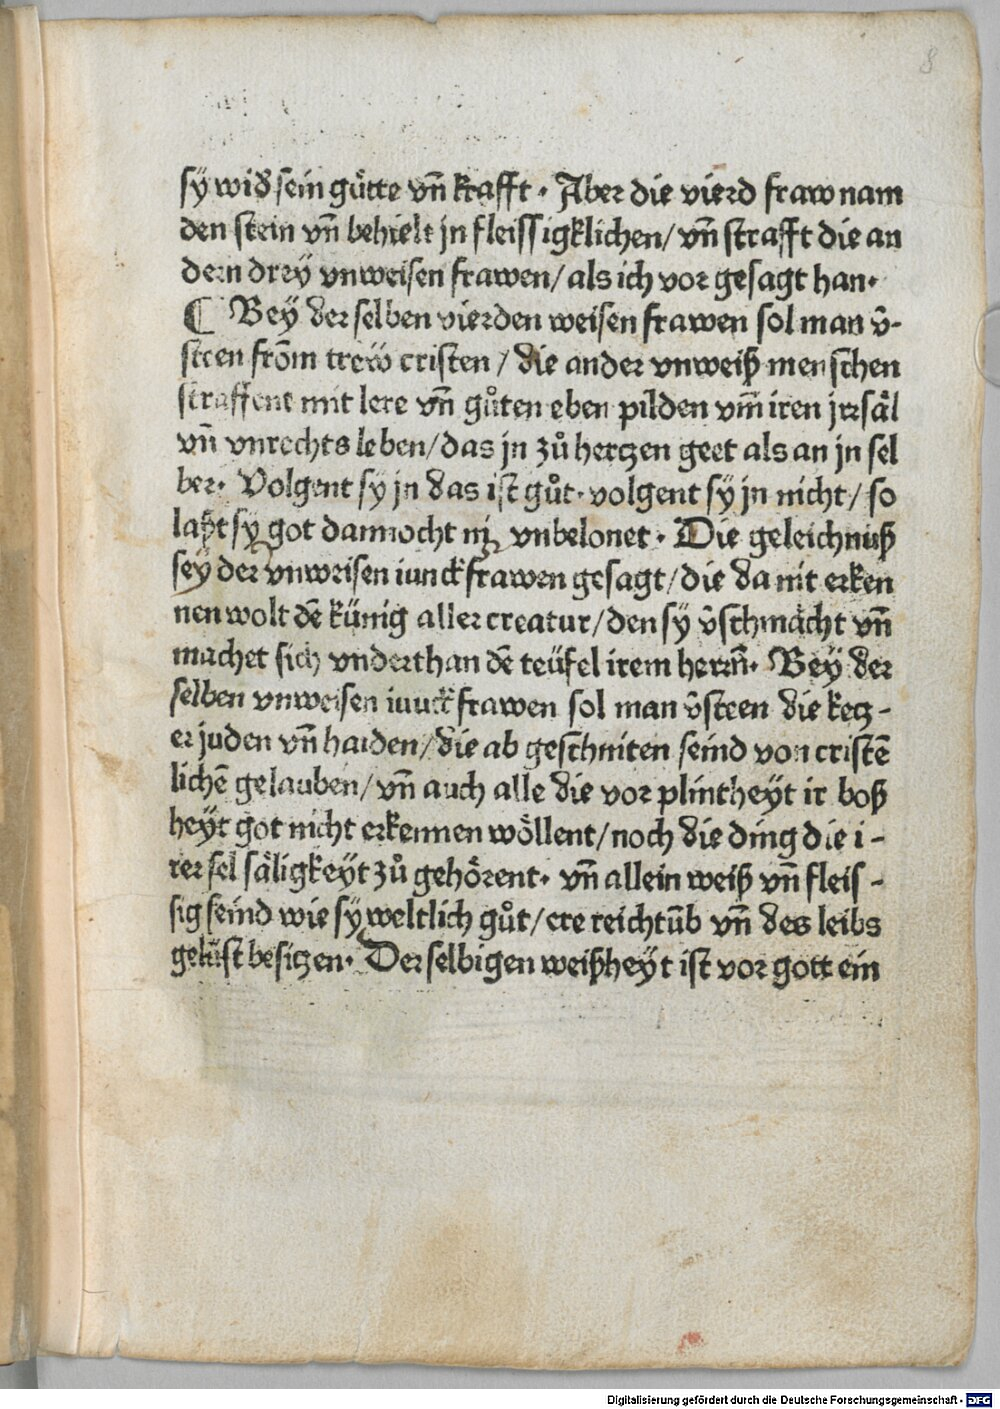 8
sy wid̄ sein gůtte vn̄ krafft · Aber die vierd fraw nam
den stein vn̄ behielt jn fleissigklichen / vn̄ strafft die an
dern drey vnweisen frawen / als ich vor gesagt han ·
¶ Bey der selben vierden weisen frawen sol man v̄-
steen from̄ trew cristen / die ander vnweiß menschen
straffent mit lere vn̄ gůten eben pilden vm̄ iren jrrsäl
vn̄ vnrechts leben / das jn zů hertzen geet als an jn sel
ber · Volgent sy jn das ist gůt · volgent sy jn nicht / so
laßt sy got dannocht nit vnbelonet · Die geleichnuß
sey der vnweisen iunckfrawen gesagt / die da nit erken
nen wolt dē künig aller creatur / den sy v̄schmächt vn̄
machet sich vnderthan dē teüfel irem herrn̄ · Bey der
selben vnweisen iunckfrawen sol man v̄steen die ketz-
er juden vn̄ haiden / die ab geschniten seind von cristē
lichē gelauben / vn̄ auch alle die vor plintheyt ir boß
heyt got nicht erkennen wöllent / noch die ding die i-
rer sel säligkeyt zů gehörent · vn̄ allein weiß vn̄ fleis-
sig seind wie sy weltlich gůt / ere reichtūb vn̄ des leibs
gelüst besitzen · Der selbigen weißheyt ist vor gott ein
Digitalisierung gefördert durch die Deutsche Forschungsgemeinschaft - DFG